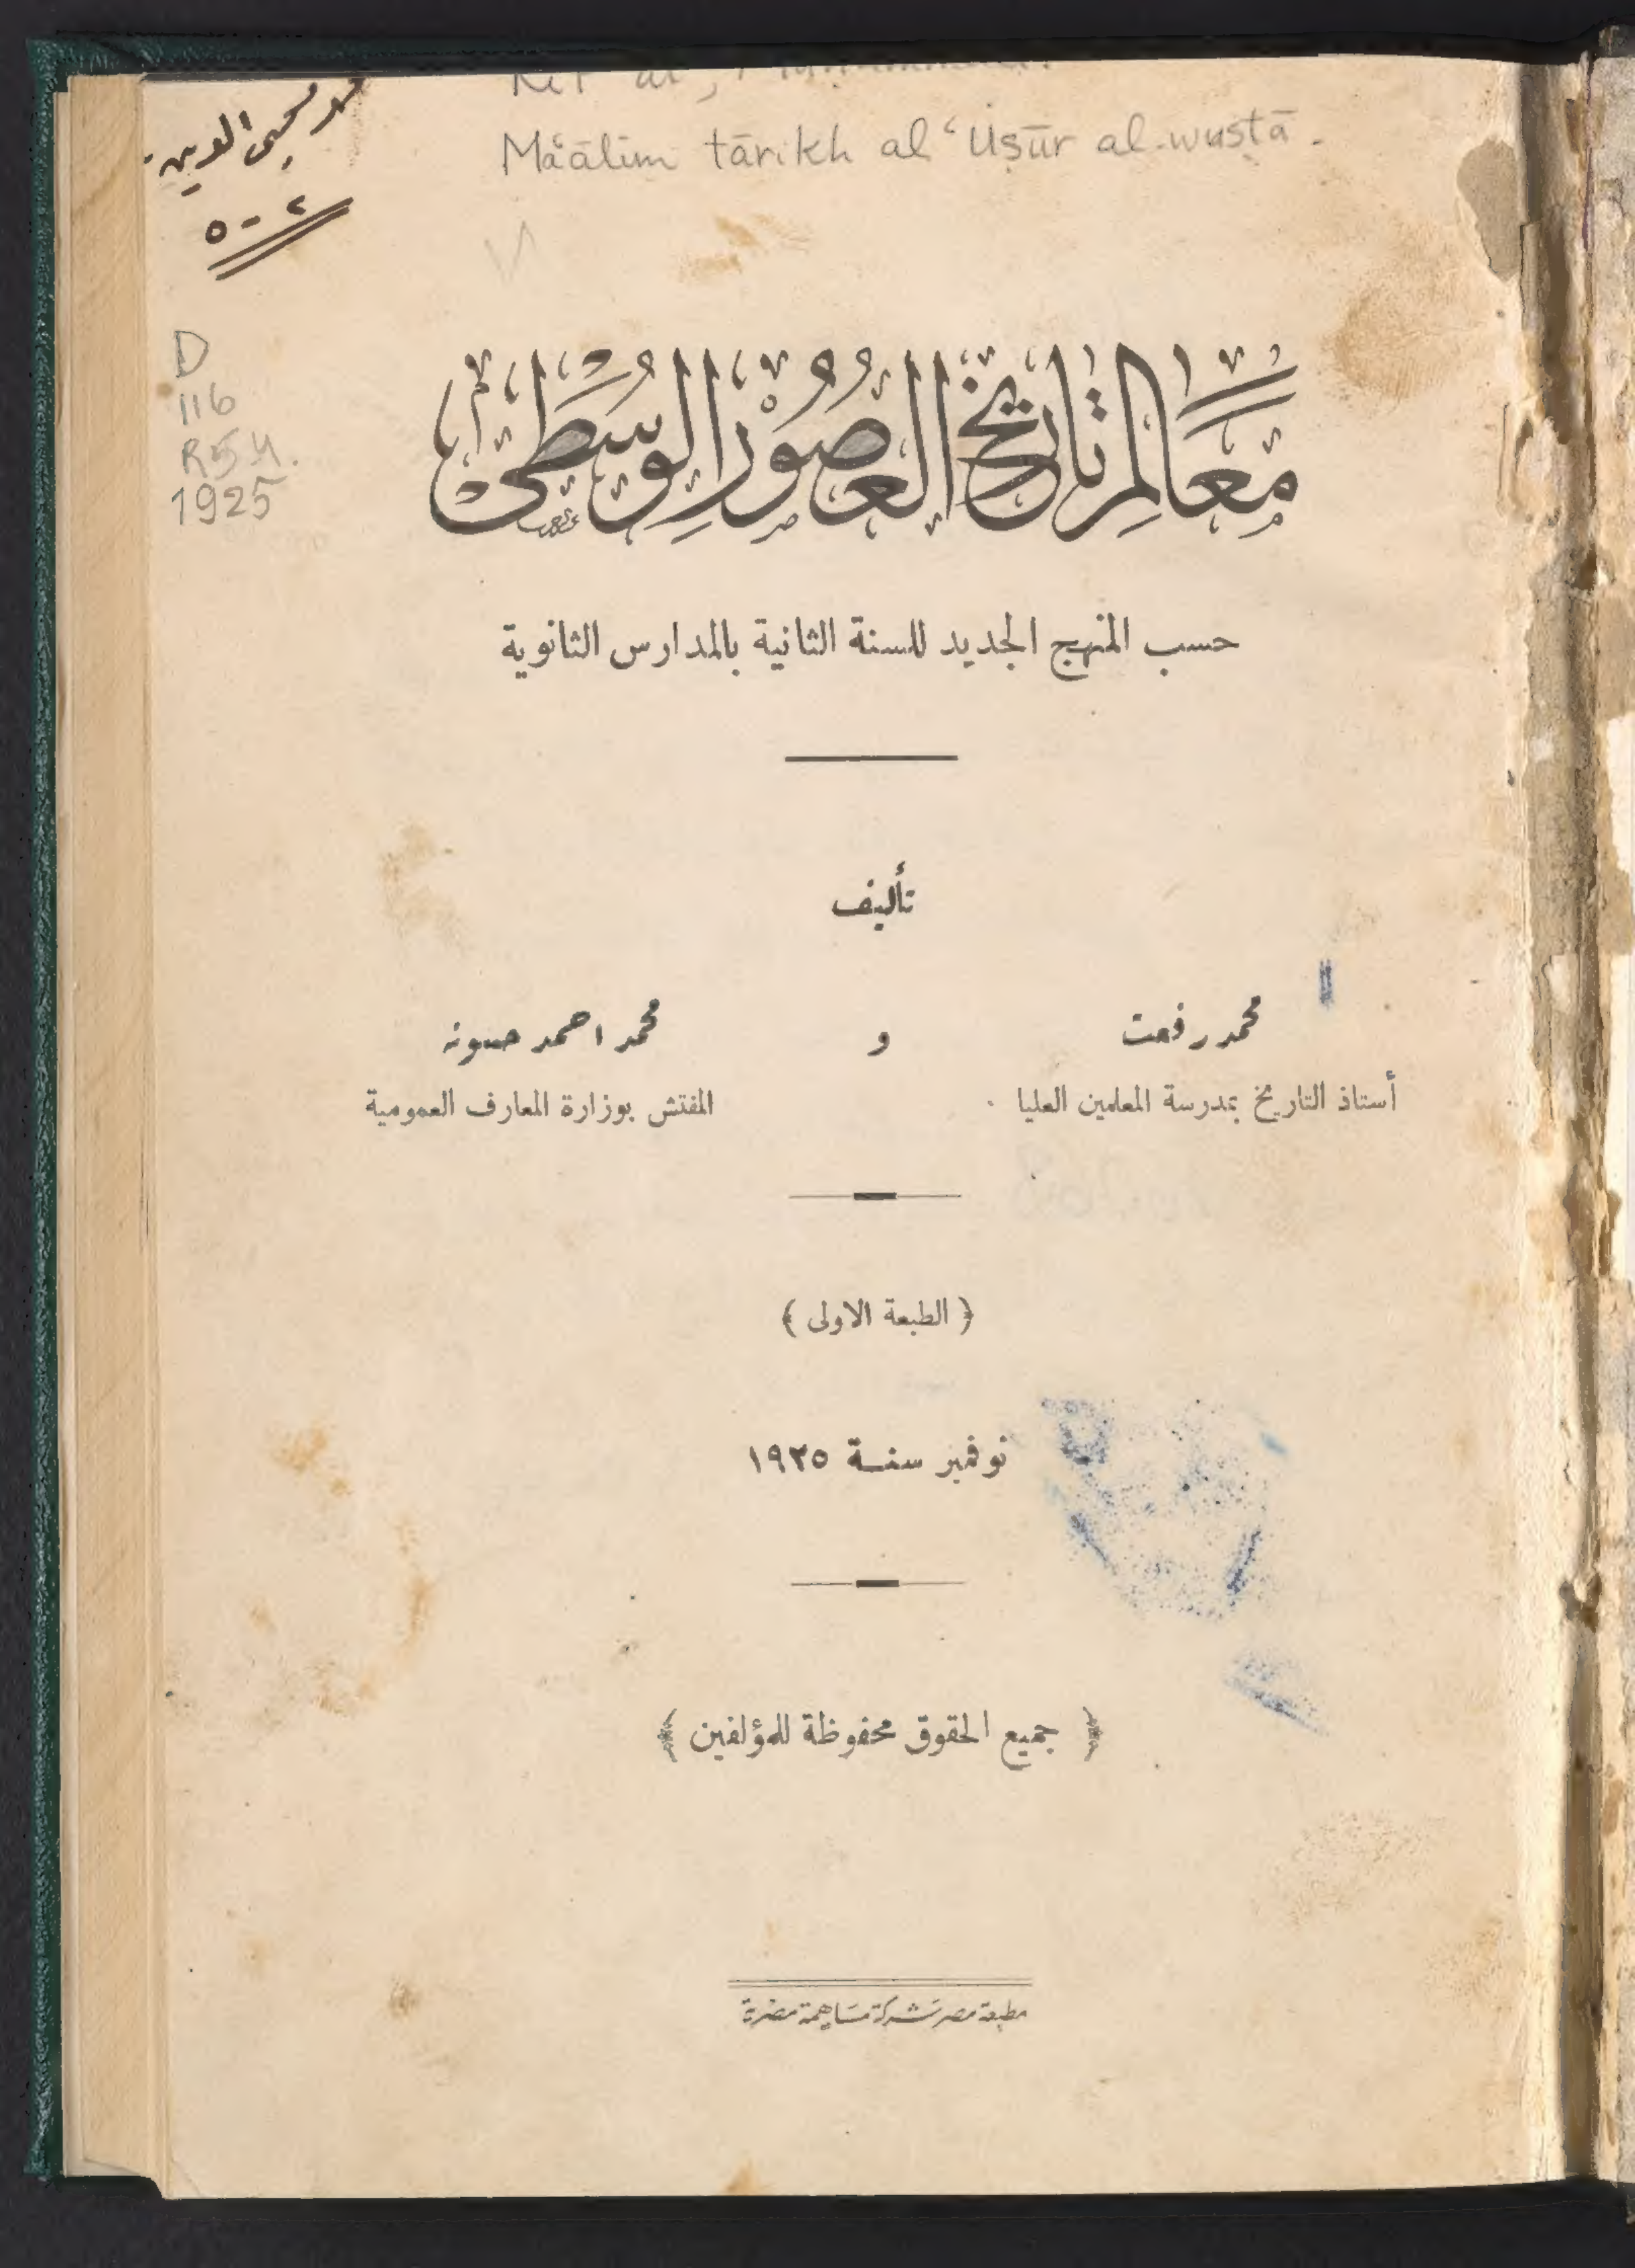 Maʿālim tārikh al ʿUṣūr al-wusṭā.
محيى الدين
٥٠٢
D
116
R54.
1925
معالم تاريخ العصور الوسطى
حسب المنهج الجديد للسنة الثانية بالمدارس الثانوية
تأليف
محمد رفعت و محمد احمد حسونه
أستاذ التاريخ بمدرسة المعلمين العليا المفتش بوزارة المعارف العمومية
﴿ الطبعة الاولى ﴾
نوفمبر سنة ١٩٢٥
﴿ جميع الحقوق محفوظة للمؤلفين ﴾
مطبعة مصر شركة مساهمة مصرية